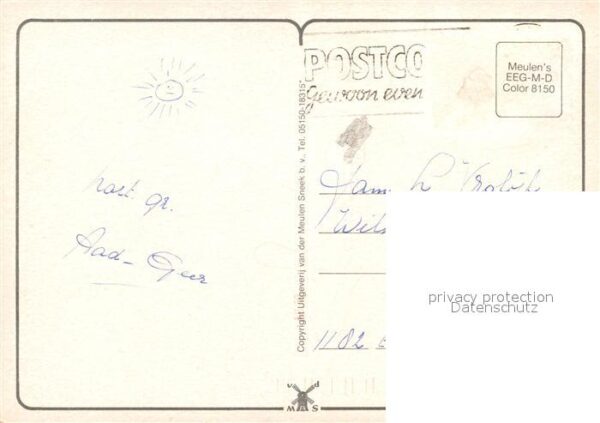 hart. gr.
Aad - Geer
Copyright Uitgeverij van der Meulen Sneek b.v. Tel. 05150-18315*
v d
M S
POSTCO
gewoon even
Meulen's
EEG-M-D
Color 8150
Fam. L.
1182
privacy protection
Datenschutz